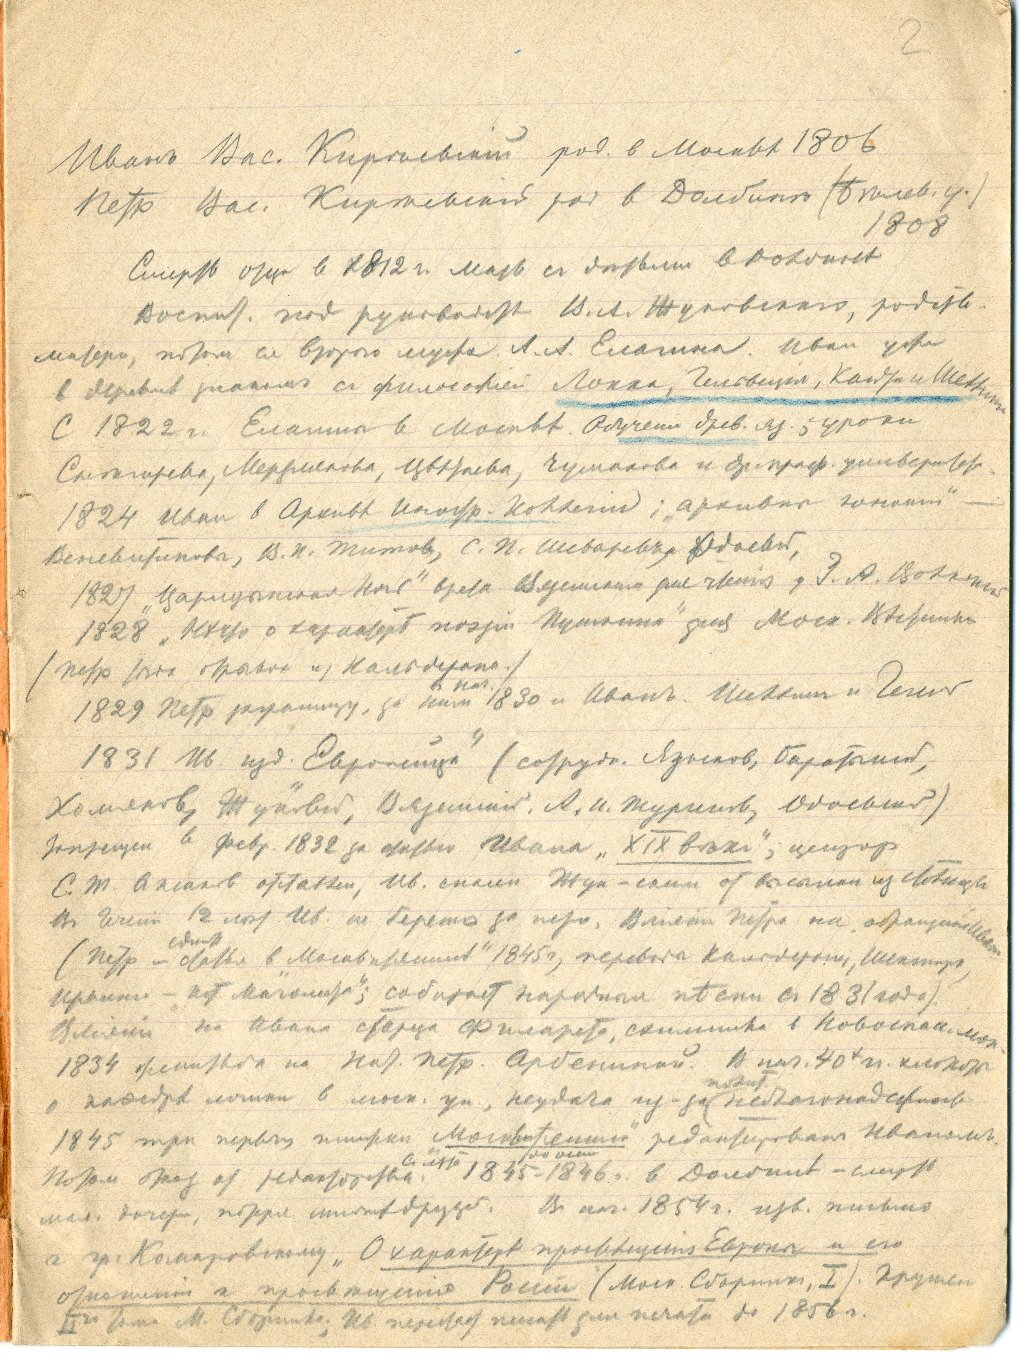 2
Иванъ Вас. Кирѣевскій род. в Москвѣ 1806
Петр Вас. Кирѣевскій род в Долбинѣ (Бѣлев. у.)
1808
Смерть отца в 1812 г. мать съ дѣтьми в
Воспит. под руководств В. А. Жуковскаго, родств.
матери, потом ея второго мужа А. А. Елагина. Иван уже
в деревнѣ знаком съ философіей Локка, Гельвеція, Канта и Шеллинга
С 1822 г. Елагины в Москвѣ. Обученіе древ. яз.; уроки
Снегирева, Мерзлякова, Цвѣтаева, Чумакова и др. проф. университета.
1824 Иван в Архивѣ Иностр. Коллегіи; „архивны юноши" —
Веневитинов, В. П. Титов, С. П. Шевыревъ, Одоевскій,
1827 „Царицынская Ночь" Вяземскаго для чтенія у З. А. Волконской
1828 „Нѣчто о характерѣ поэзіи Пушкина" для Моск. Вѣстника
(Петр отрывок из Кальдерона.)
1829 Петр заграницу, за ним в нач. 1830 и Иванъ. Шеллинг и Гегель
1831 Ив. изд. „Европейца" (сотрудн. Языков, Баратынскій,
Хомяков, Жуковскій, Вяземскій, А. И. Тургенев, Одоевскій)
Запрещен в февр. 1832 за статью Ивана „XIX вѣкъ"; цензор
С. Т. Аксаков отставлен, Ив. спасен Жук-ским от высылки из столицы
В теченіи 12 лет Ив. не берется за перо. Вліяніе Петра на обращеніе Ивана
(Петр — одна статья в „Москвитянинѣ" 1845 г., перевода Кальдерона, Шекспира,
Ирвинга — „Магомета"; собирает народныя пѣсни съ 1831 года).
Вліяніе на Ивана старца Филарета, схимника в Новоспасск. мон.
1834 женитьба на Нат. Петр. Арбениной. В нач. 40х гг. хлопоты
о кафедрѣ логики в моск. ун., неудача из-за полит. неблагонадежности
1845 три первых книжки „Москвитянина" редактированы Иваномъ.
Потом отказ от редакторства. Съ лѣта 1845 - до осени 1846 г. в Долбинѣ — смерть
мал. дочери, потеря многих друзей. В нач. 1854 г. изв. письмо
к гр. Комаровскому „О характерѣ просвѣщенія Европы и его
отношеніи к просвѣщенію Россіи" (Моск. Сборникъ, I).
IIго тома М. Сборника; Ив. перестает писать для печати до 1856 г.